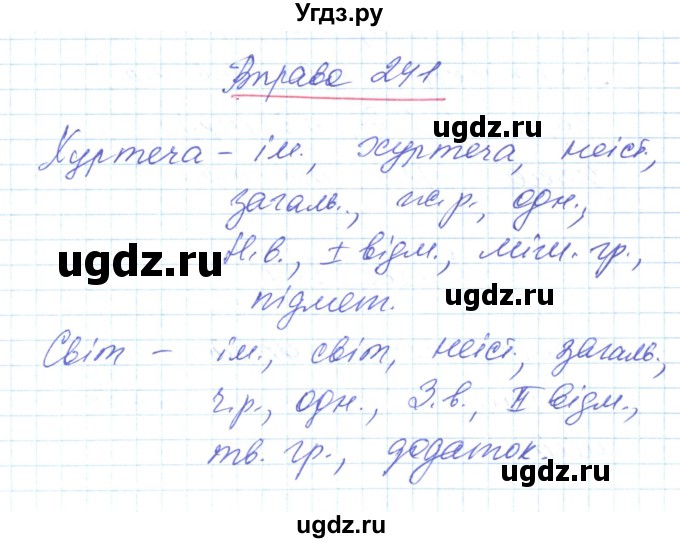 Угдз.ру
Вправа 241
ugdz.ru
Хуртеча – ім., хуртеча, неіст.,
загаль., ж.р., одн.,
ugdz.ru
Н.в., І відм., міш. гр.,
ugdz.ru
підмет.
Світ – ім., світ, неіст., загаль.,
ugdz.ru
ч.р., одн., З.в., ІІ відм.,
тв. гр., додаток.
ugdz.ru
ugdz.ru